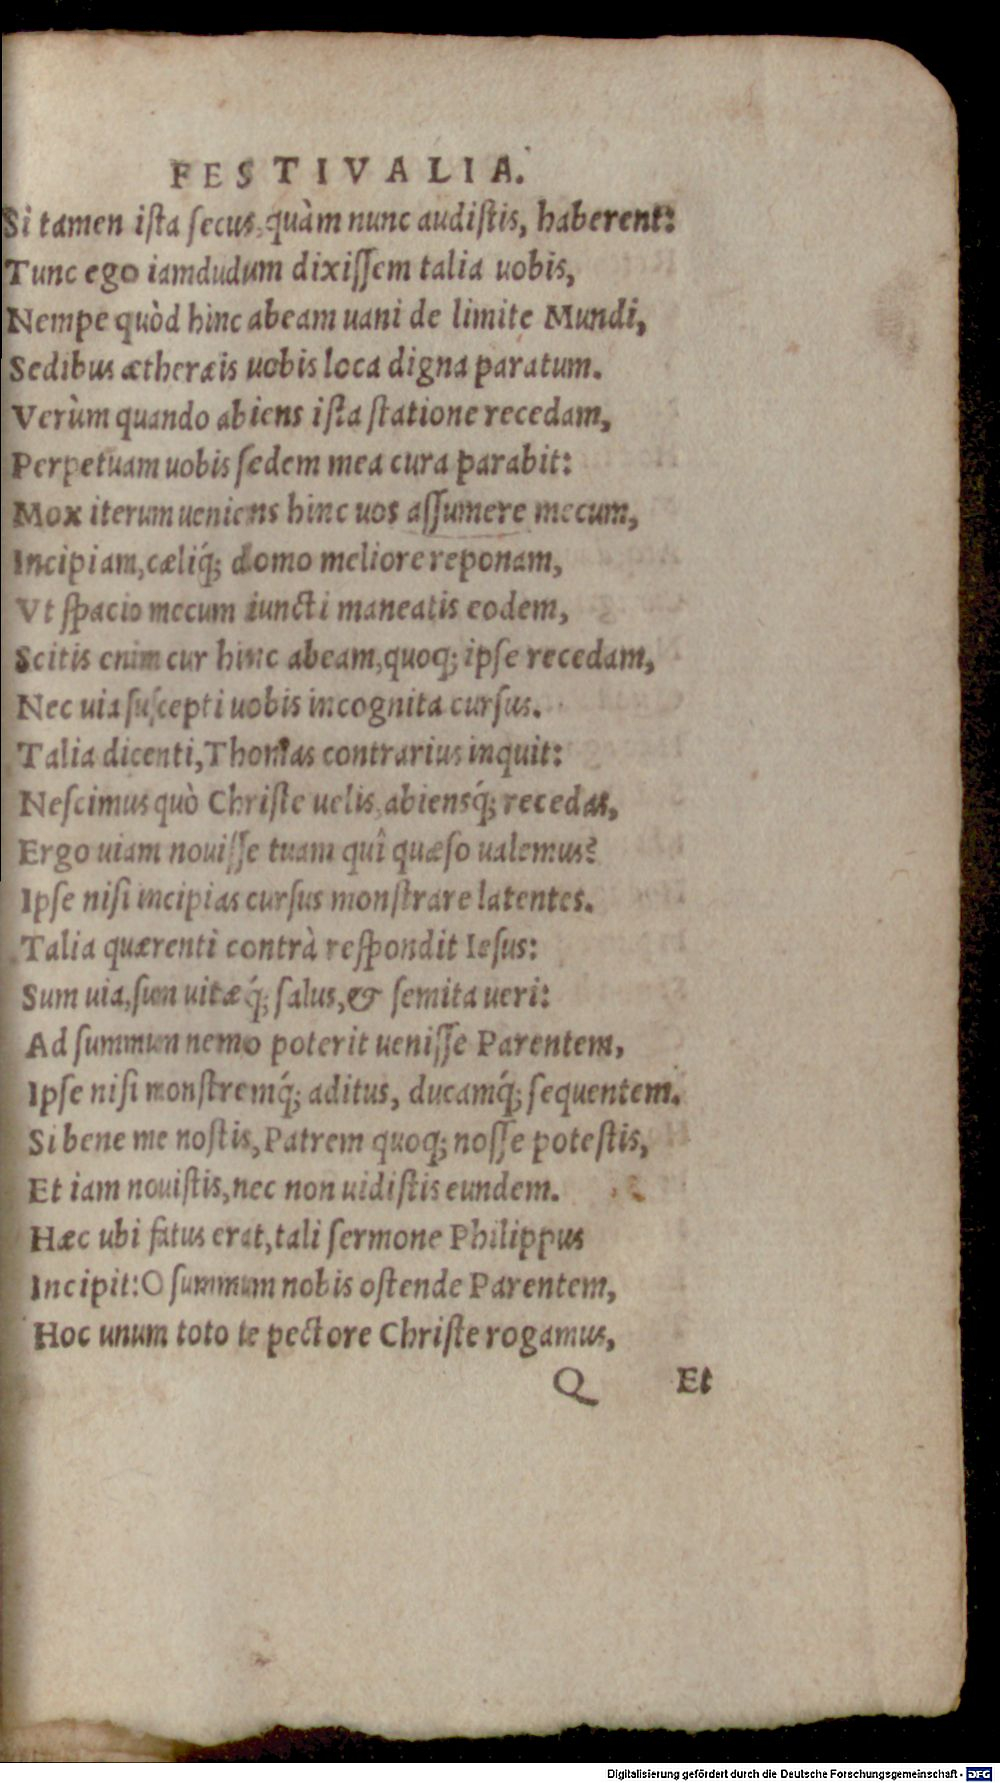 FESTIVALIA.
Si tamen ista secus, quàm nunc audistis, haberent:
Tunc ego iamdudum dixissem talia uobis,
Nempe quòd hinc abeam uani de limite Mundi,
Sedibus æthereis uobis loca digna paratum.
Verùm quando abiens ista statione recedam,
Perpetuam uobis sedem mea cura parabit:
Mox iterum ueniens hinc uos assumere mecum,
Incipiam, cæliq́; domo meliore reponam,
Vt spacio mecum iuncti maneatis eodem,
Scitis enim cur hinc abeam, quoq; ipse recedam,
Nec uia suscepti uobis incognita cursus.
Talia dicenti, Thomas contrarius inquit:
Nescimus quò Christe uelis, abiensq́; recedas,
Ergo uiam nouisse tuam quî quæso ualemus?
Ipse nisi incipias cursus monstrare latentes.
Talia quærenti contrà respondit Iesus:
Sum uia, sum uitæq́; salus, & semita ueri:
Ad summum nemo poterit uenisse Parentem,
Ipse nisi monstremq́; aditus, ducamq́; sequentem.
Si bene me nostis, Patrem quoq; nosse potestis,
Et iam nouistis, nec non uidistis eundem.
Hæc ubi fatus erat, tali sermone Philippus
Incipit: O summum nobis ostende Parentem,
Hoc unum toto te pectore Christe rogamus,
Q Et
Digitalisierung gefördert durch die Deutsche Forschungsgemeinschaft - DFG